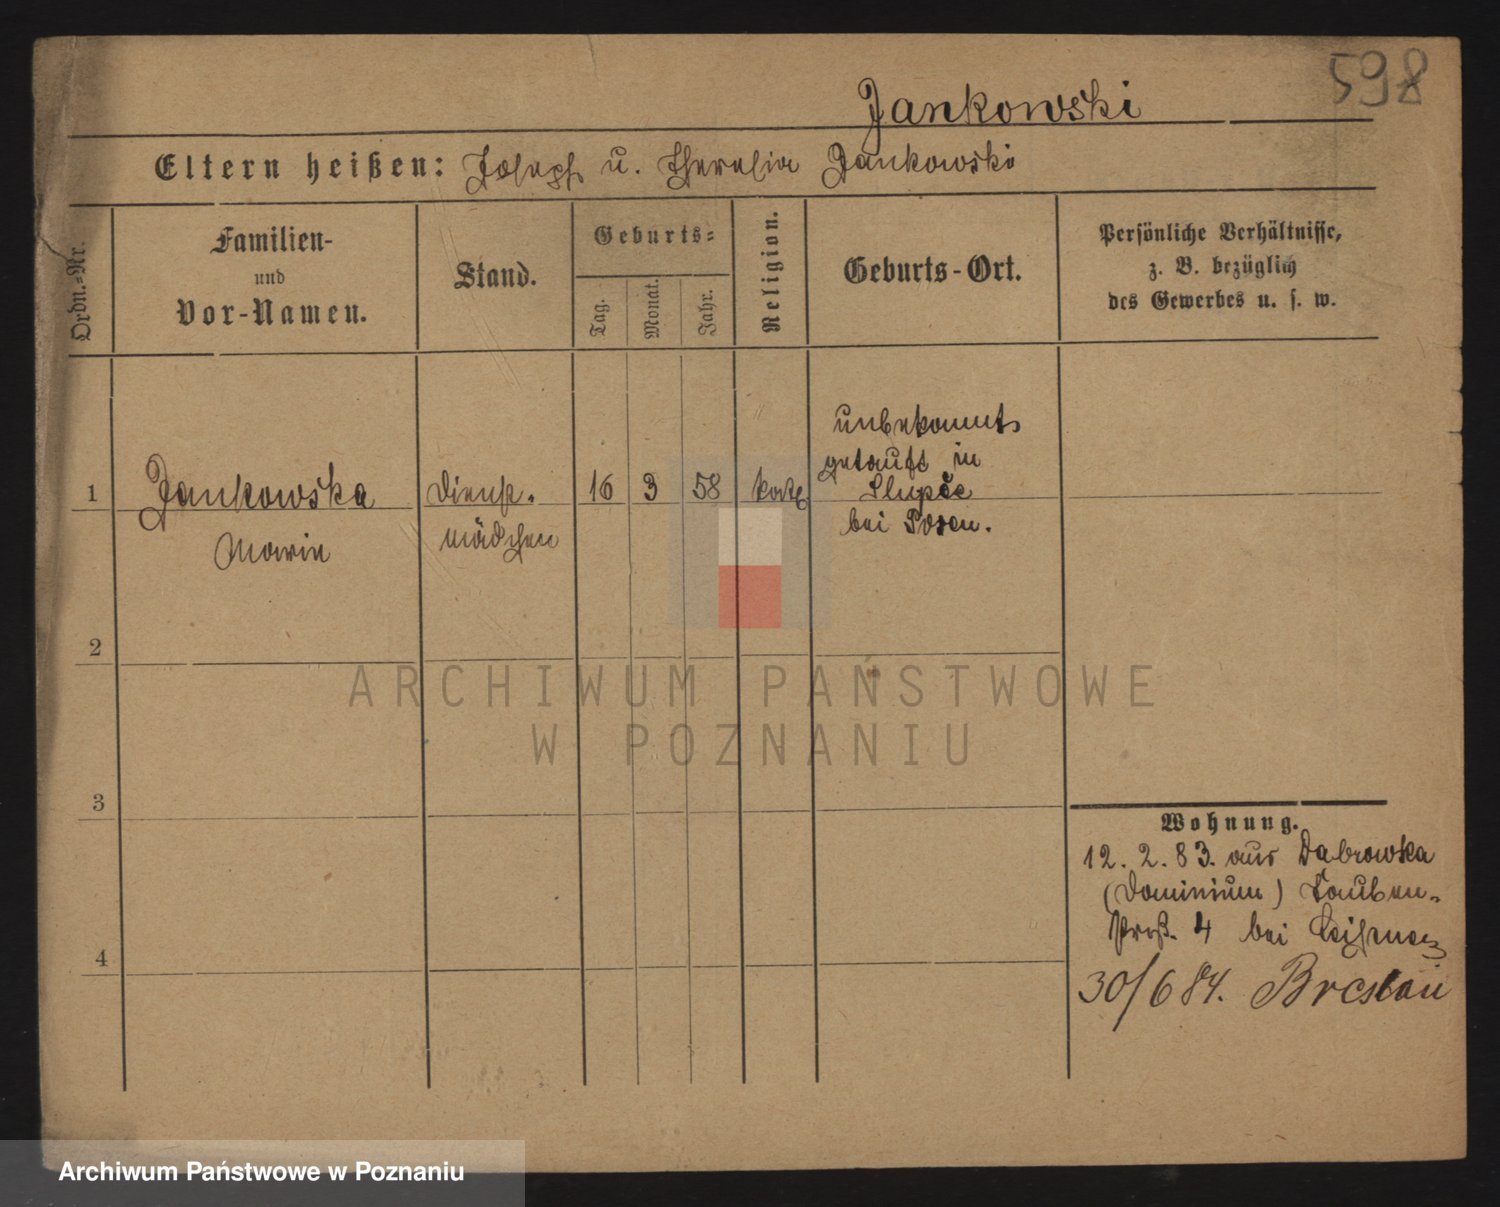 598
Jankowski
Eltern heißen: Joseph u. Theresia Jankowski
Ordn.-Nr.
Familien-
und
Vor-Namen.
Stand.
Geburts-
Tag.
Monat.
Jahr.
Religion.
Geburts-Ort.
Persönliche Verhältnisse,
z. B. bezüglich
des Gewerbes u. s. w.
1
Jankowska
Marie
Dienst-
mädchen
16
3
58
kath
unbekannt
getauft in
Slupce
bei Posen.
2
3
4
Wohnung.
12. 2. 83. aus Dąbrowka
(Dominium) Tauben-
straß. 4 bei
30/6 84. Breslau
ARCHIWUM PAŃSTWOWE
W POZNANIU
Archiwum Państwowe w Poznaniu